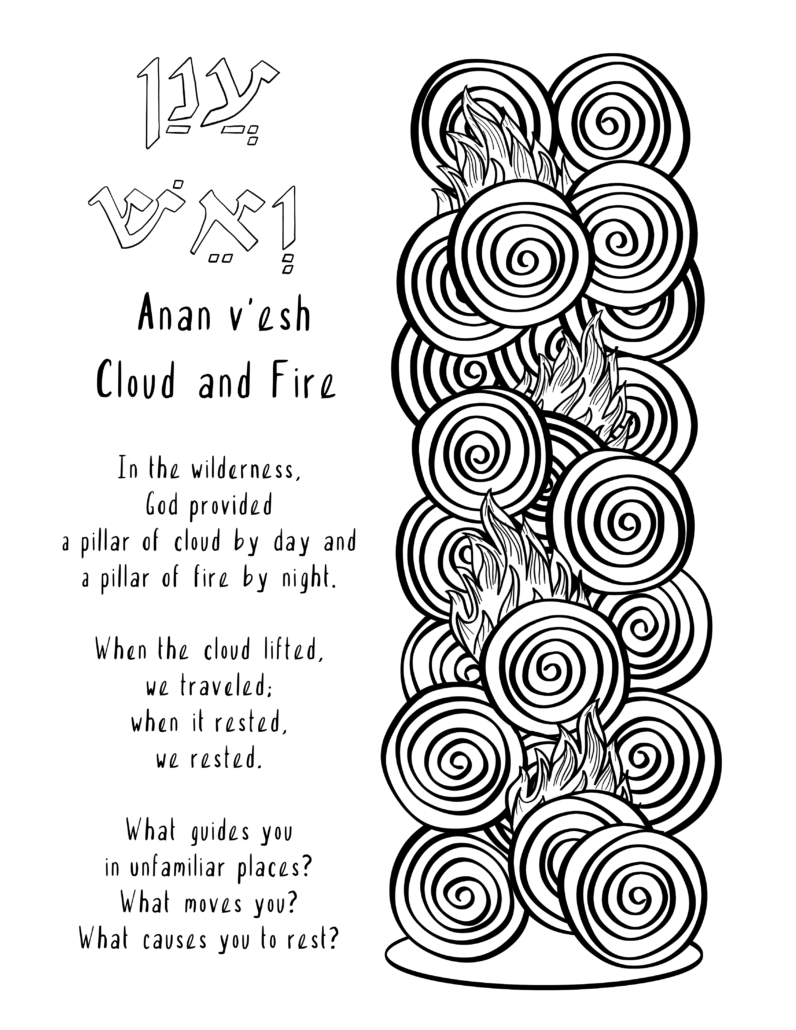 עֲנַן
וֶאֵשׁ
Anan v'esh
Cloud and Fire
In the wilderness,
God provided
a pillar of cloud by day and
a pillar of fire by night.
When the cloud lifted,
we traveled;
when it rested,
we rested.
What guides you
in unfamiliar places?
What moves you?
What causes you to rest?